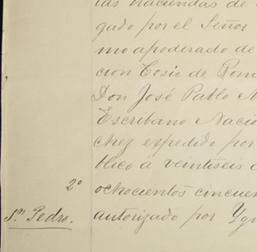 las haciendas de
gado por el Señor
mo apoderado de
cion Cosio de Rom
Don José Pablo
Escribano Nacio
chez expedido por
blico a veintiseis
2º
ochocientos cincuen
Sn. Pedro.
autorizado por Ygn